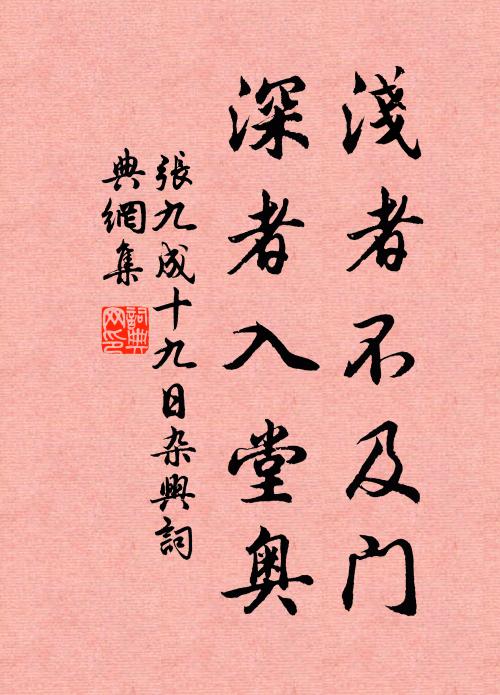 淺者不及門
深者入堂奧
張九成十九日杂興詞
典網集
詞典
网印